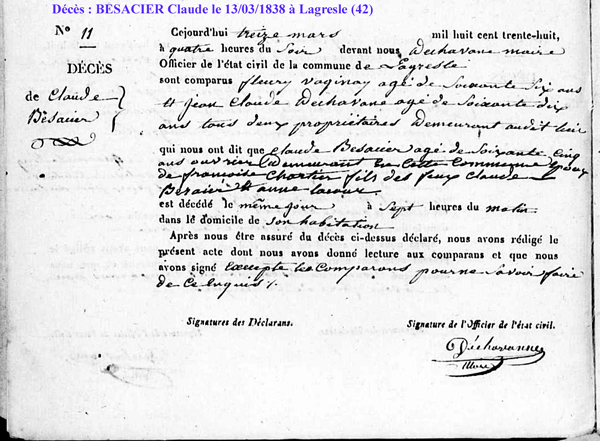 Décès : BESACIER Claude le 13/03/1838 à Lagresle (42)
N° 11
DÉCÈS
de Claude
Besacier
Cejourd'hui treize mars mil huit cent trente-huit,
à quatre heures du Soir devant nous Dechavane maire
Officier de l'état civil de la commune de Lagresle
sont comparus fleury vaginay agé de Soixante Six ans
et jean Claude Dechavane agé de Soixante dix
ans tous deux propriétaires Demeurant audit lieu
qui nous ont dit que Claude Besacier agé de Soixante Cinq
ans ouvrier Demeurant en Cette Commune Epoux
de francoise Chartin fils des feux Claude
Besacier et anne
est décédé le même jour à Sept heures du matin
dans le domicile de Son habitation
Après nous être assuré du décès ci-dessus déclaré, nous avons rédigé le
présent acte dont nous avons donné lecture aux comparans et que nous
avons signé Excepté les Comparans pour ne Savoir faire
de Ce Enquis
Signatures des Déclarans.
Signature de l'Officier de l'état civil.
Déchavanne
Mere